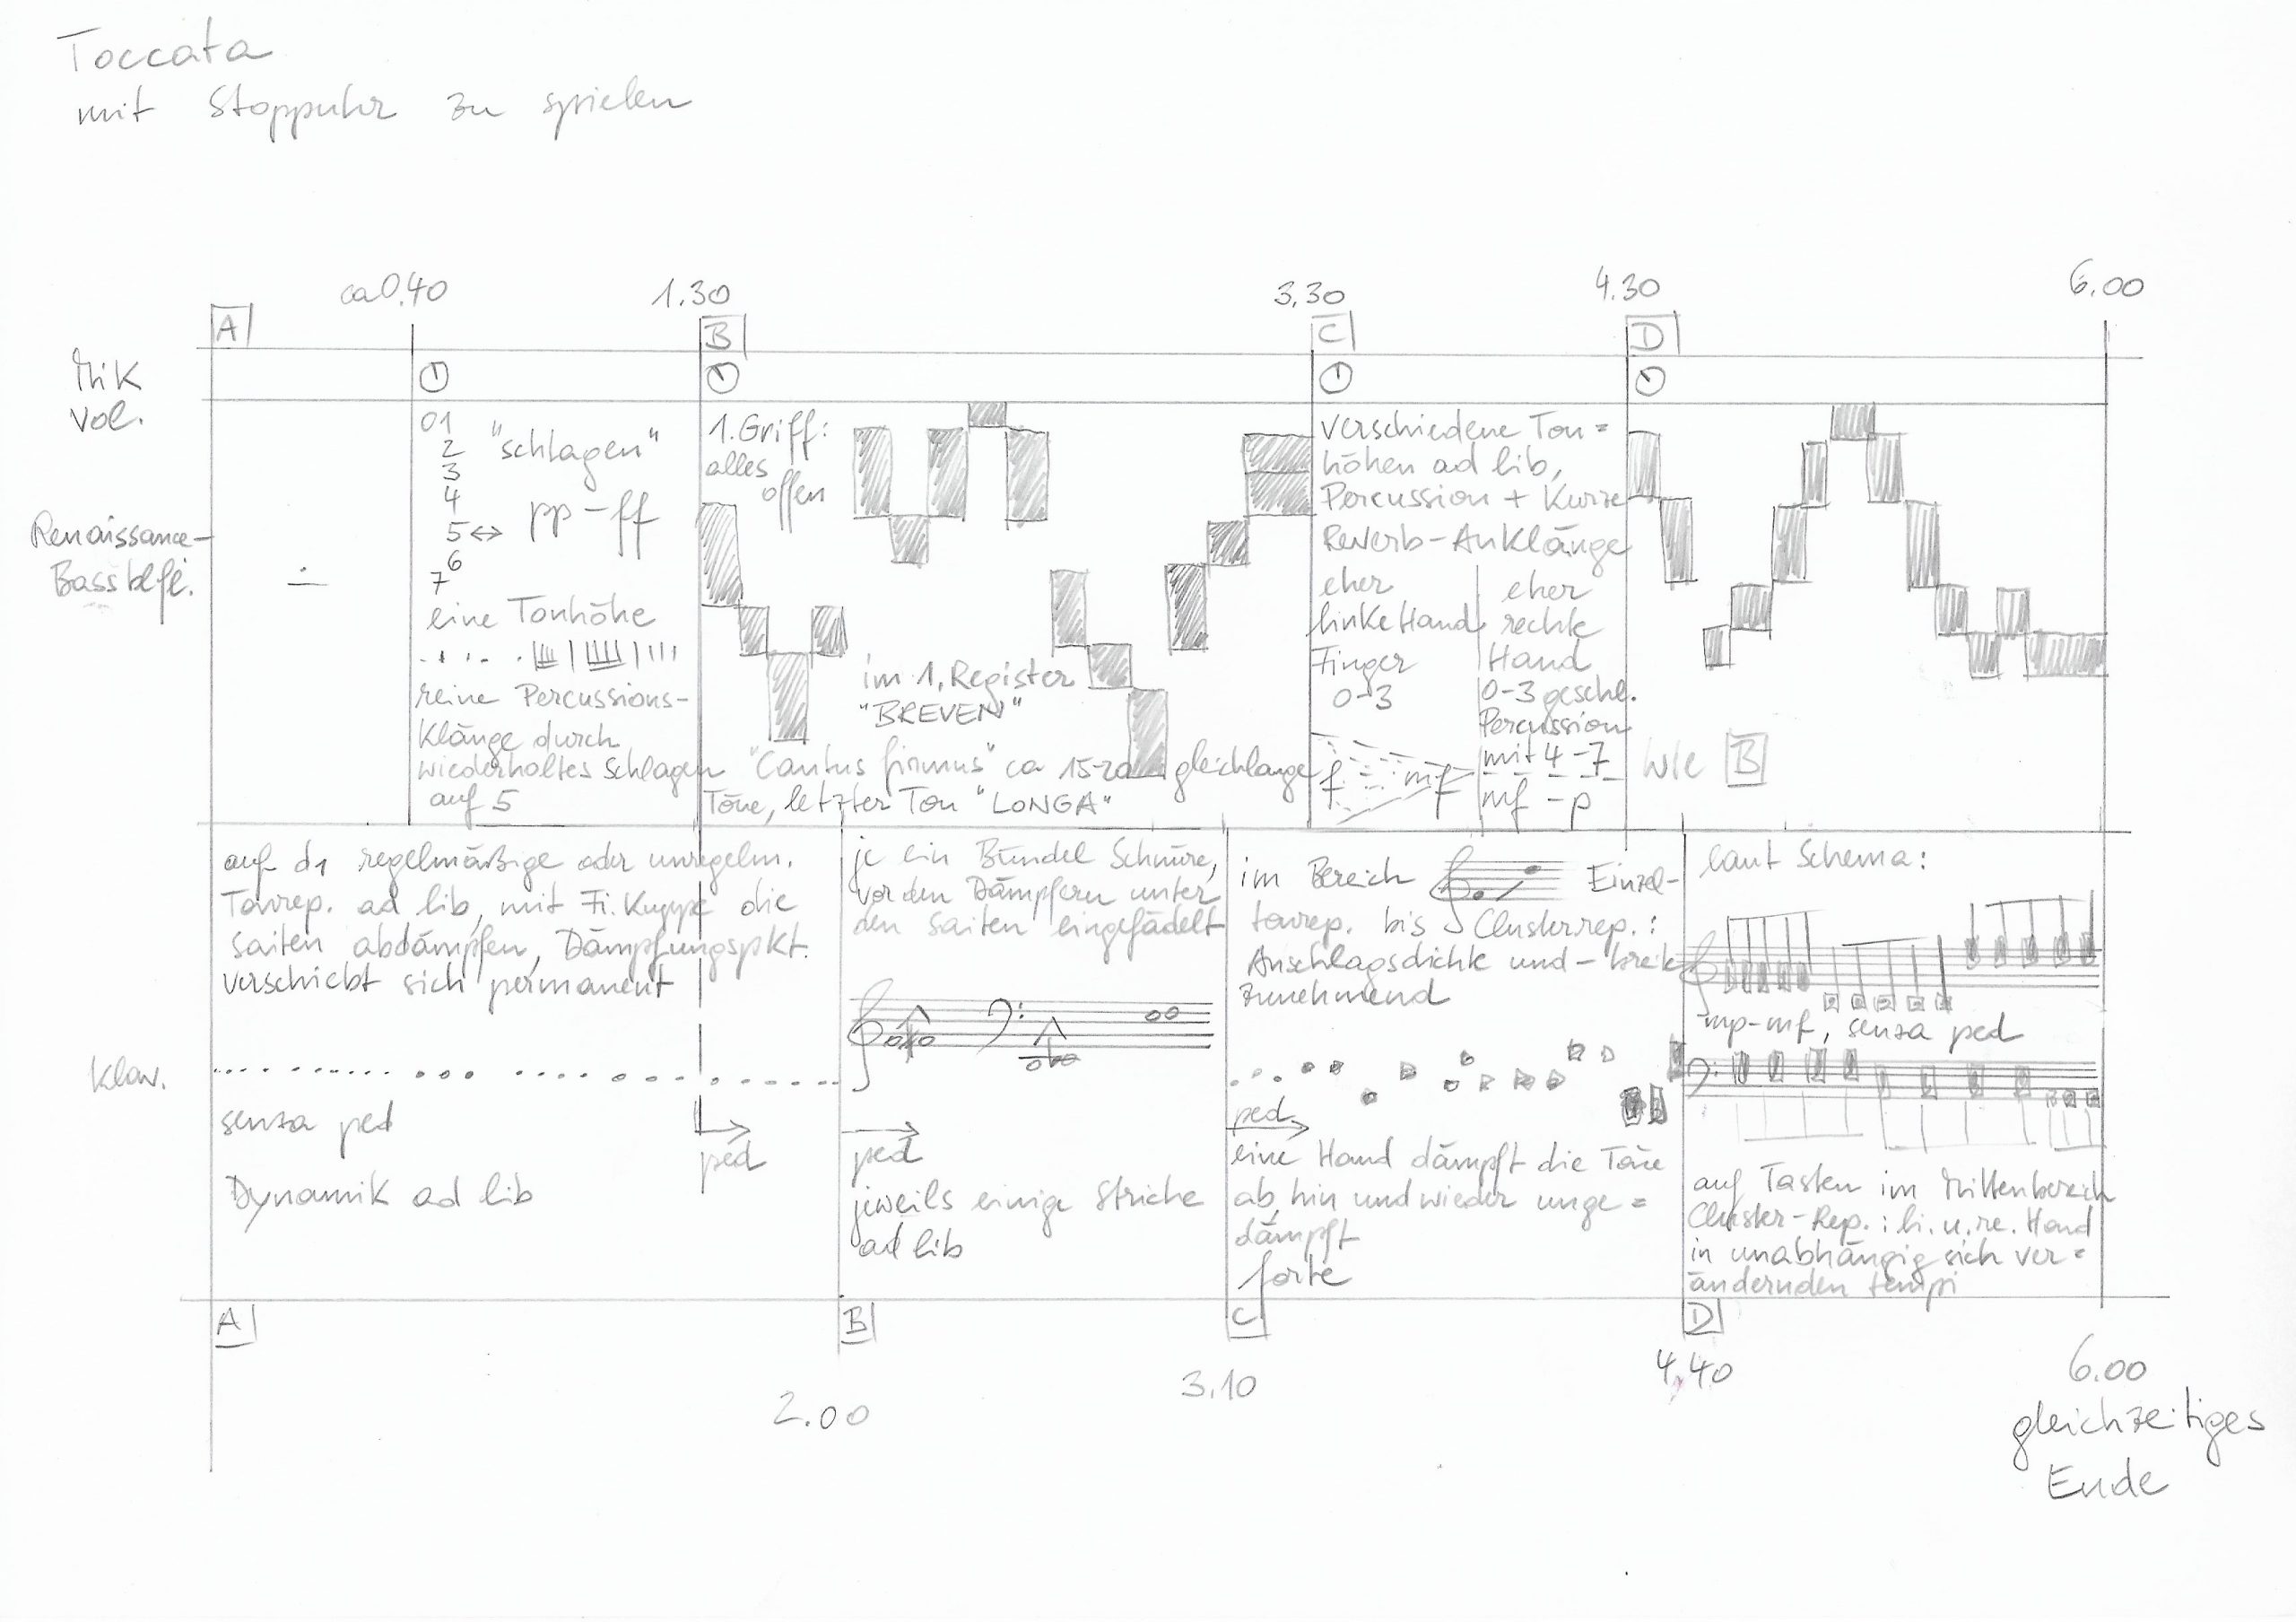 Toccata
mit Stoppuhr zu spielen
ca 0.40
1.30
3.30
4.30
6.00
A
B
C
D
Mik
Vol.
Renaissance-
Bassblfl.
01
2
3
4
5 ↔
6
7
"schlagen"
pp - ff
eine Tonhöhe
reine Percussions-
Klänge durch
wiederholtes Schlagen
auf 5
1. Griff:
alles
offen
im 1. Register
"BREVEN"
"Cantus firmus" ca 15-20 gleichlange
Töne, letzter Ton "LONGA"
Verschiedene Ton=
höhen ad lib,
Percussion + Kurze
Reverb-Anklänge
eher
linke Hand
Finger
0-3
f mf
eher
rechte
Hand
0-3 geschl.
Percussion
mit 4-7
mf - p
wie B
Klav.
auf d1 regelmäßige oder unregelm.
Tonrep. ad lib, mit Fi.Kuppe die
Saiten abdämpfen, Dämpfungspkt.
verschiebt sich permanent
senza ped
ped
Dynamik ad lib
je ein Bündel Schnüre,
vor den Dämpfern unter
den Saiten eingefädelt
ped
jeweils einige Striche
ad lib
im Bereich Einzel-
tonrep. bis Clusterrep.:
Anschlagsdichte und -breite
zunehmend
ped
eine Hand dämpft die Töne
ab, hin und wieder unge=
dämpft
forte
laut Schema:
mp-mf, senza ped
auf Tasten im Mittenbereich
Cluster-Rep.: li. u. re. Hand
in unabhängig sich ver=
ändernden tempi
A
B
C
D
2.00
3.10
4.40
6.00
gleichzeitiges
Ende